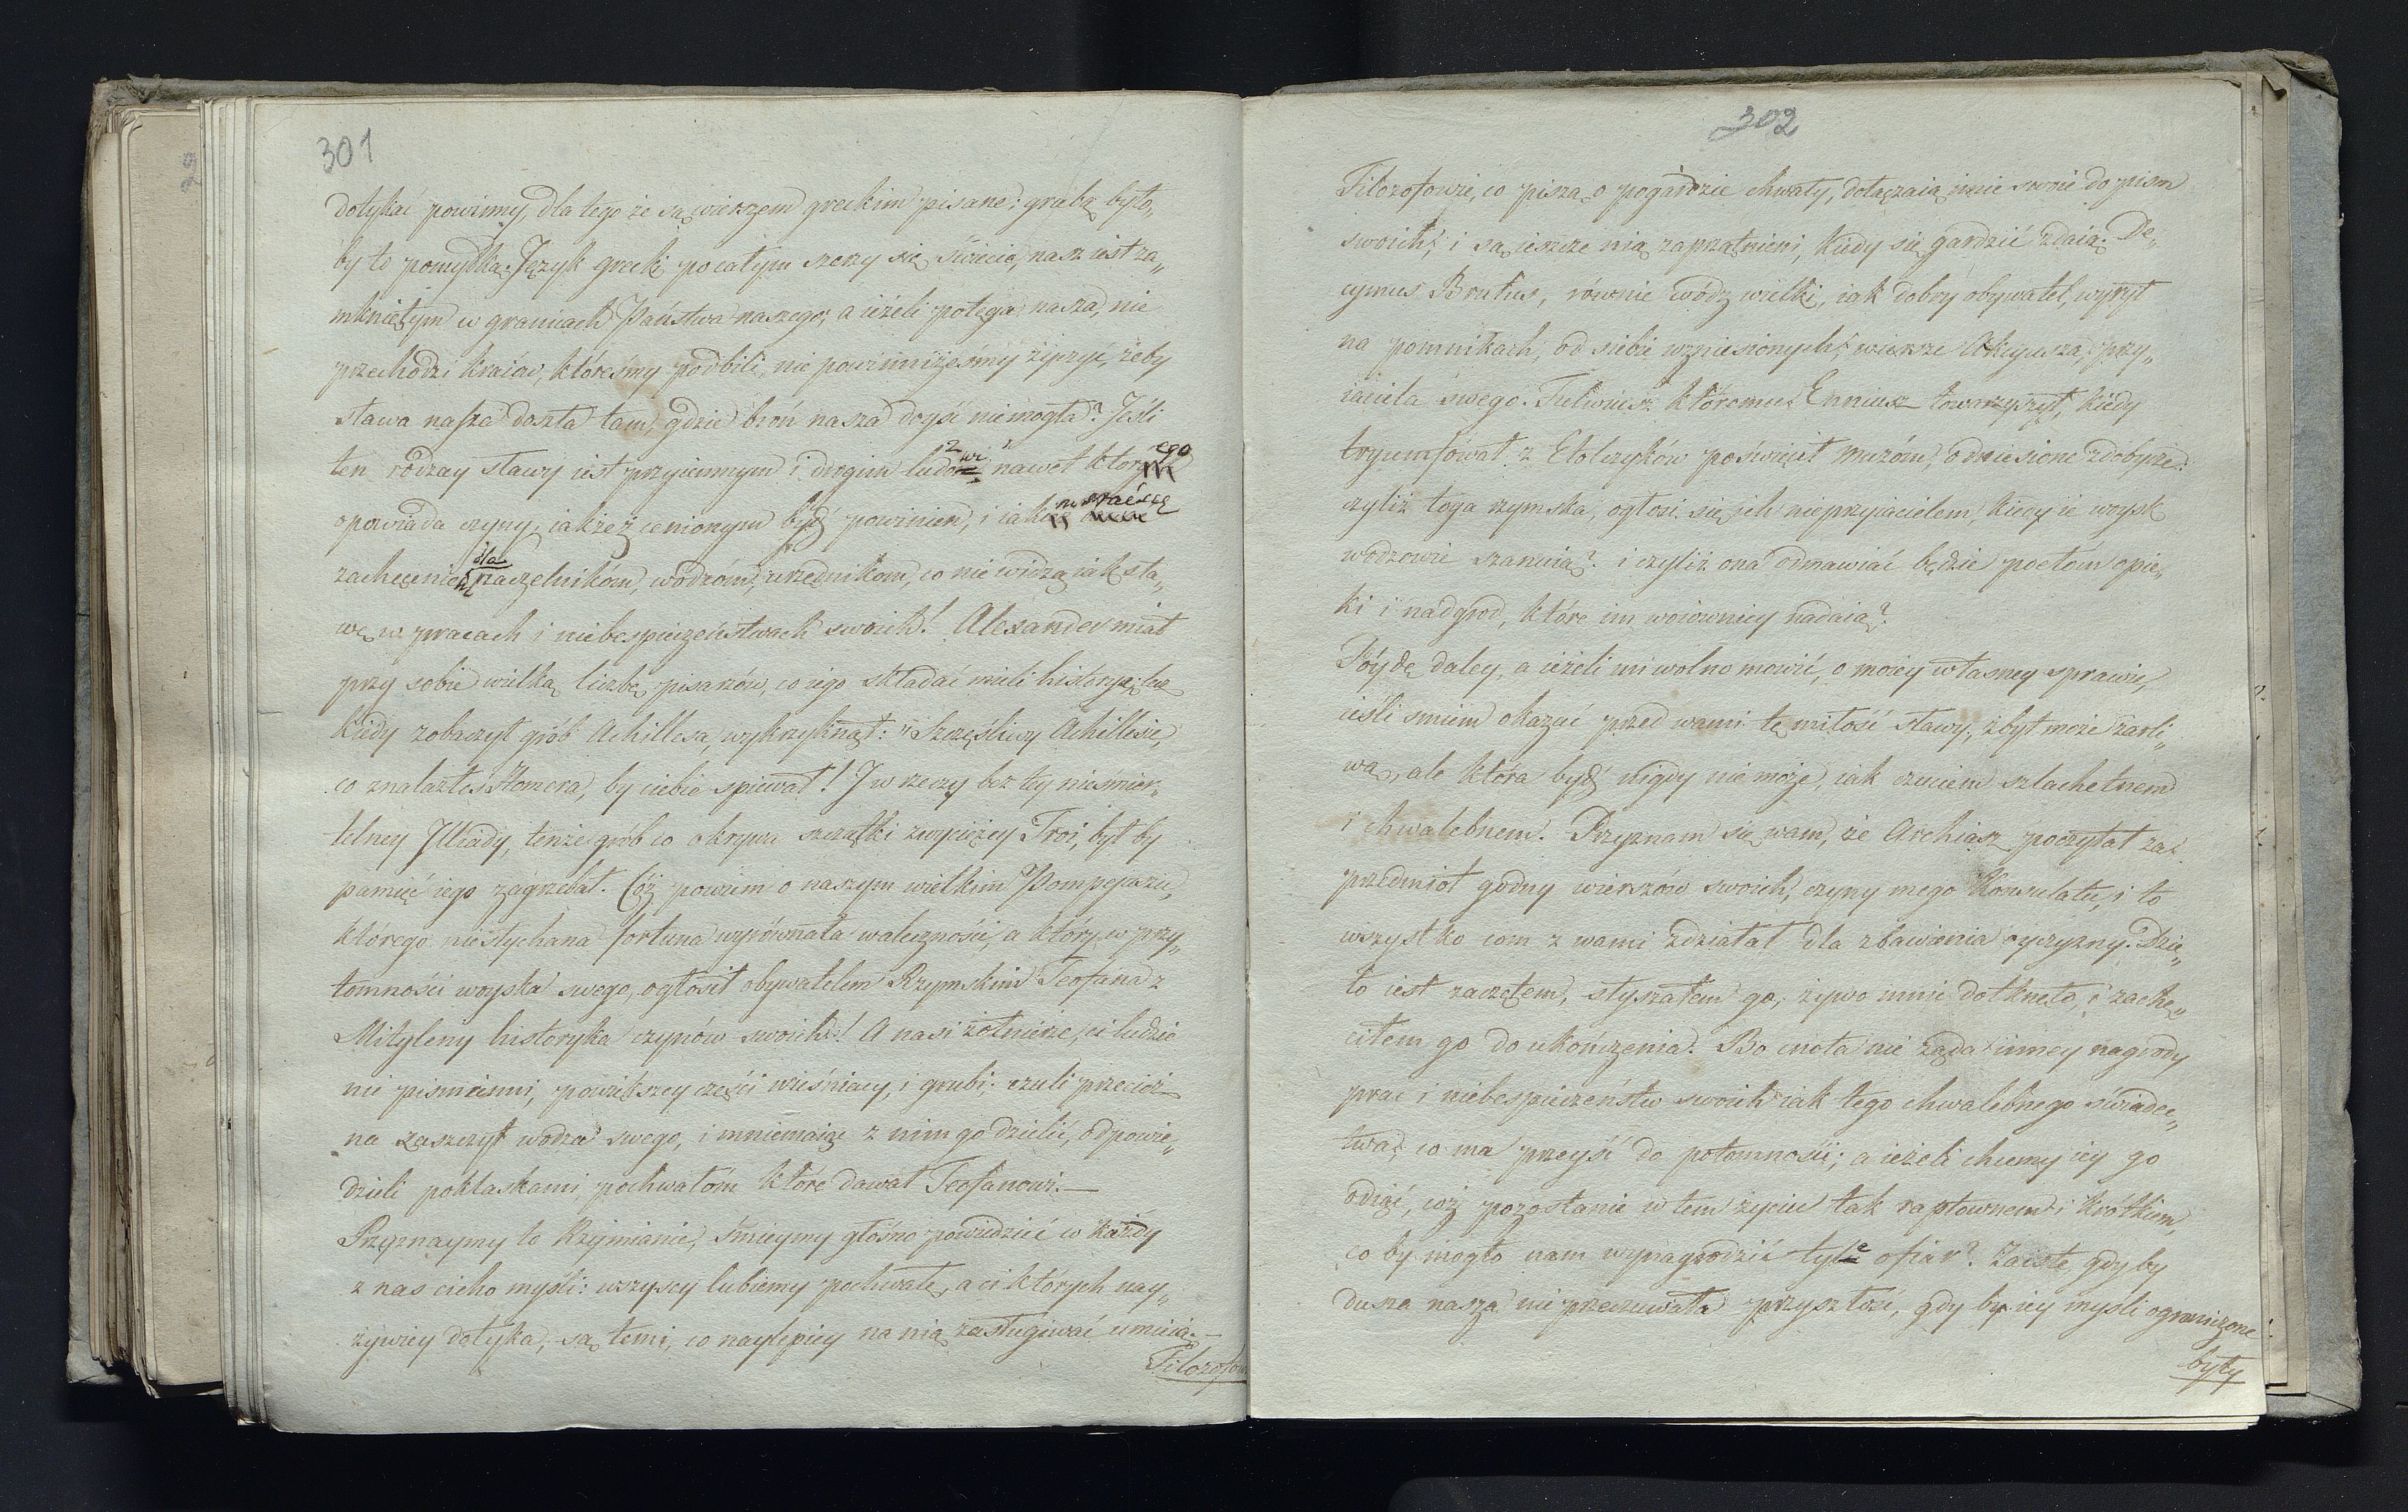 301
dotykać powinny, dla tego że są wierszem greckim pisane: grubą było„
by to pomyłką. Język grecki po całym szerzy się świecie, nasz iest za„
mkniętym w granicach Państwa naszego; a ieżeli potęga nasza, nie
przechodzi kraiów, któreśmy podbili, nie powinniżeśmy życzyć, żeby
sława nasza doszła tam, gdzie broń nasza doyść niemogła? Jeśli
ten rodzay sławy iest przyiemnym i drugim ludowi nawet którego
opowiada czyny, iakżeż cenionym bydź powinien, i iako
zachęcenie dla naczelników, wodzów, urzędnikom, co nie widzą iak sła„
wę w pracach i niebespieczeństwach swoich! Alexander miał
przy sobie wielką liczbę pisarzów, co iego składać mieli historyę: lecz
kiedy zobaczył grób Achillesa, wykrzyknął: "Szczęśliwy Achillesie,
co znalazłeś Homera, by ciebie spiewał! J w rzeczy bez tey niesmier„
telney Jlliady, tenże grób co okrywa szczątki zwyciężcy Troi, był by
pamięć iego zagrzebał. Cóż powiem o naszym wielkim Pompejuszu,
którego niesłychana fortuna wyrównała waleczności, a który w przy„
tomności woyska swego, ogłosił obywatelem Rzymskim Teofana z
Mityleny historyka czynów swoich! A nasi żołnierze, ci ludzie
nie pismienni, powiększey części wieśniacy, i grubi; czuli przecież
na zaszczyt wodza swego, i mniemaiąc z nim go dzielić, odpowie„
dzieli poklaskami pochwałóm które dawał Teofanowi.—
Przyznaymy to Rzymianie, śmieymy głośno powiedzieć co każdy
z nas cicho myśli: wszyscy lubiemy pochwałę, a ci których nay„
żywiey dotyka, są temi, co naylepiey na nią zasługiwać umieią.—
Filozofow
302
Filozofowie, co piszą o pogardzie chwały, dołączaią imie swoie do pism
swoich; i są ieszcze nią zaprzątnieni, kiedy się gardzić zdaią. De„
cymus Brutus, równie wódz wielki, iak dobry obywatel, wyrył
na pomnikach, od siebie wzniesionych, wiersze Akcyusza, przy„
iaciela swego. Fulwiusz któremu Enniusz towarzyszył, kiedy
tryumfował z Etolczyków poświęcił muzóm, odniesione zdobycze:
czyliż toga rzymska, ogłosi się ich nieprzyiacielem, kiedy ie woysk
wodzowie szanuią? i czyliż ona odmawiać będzie poetóm opie„
ki i nadgrod, które im woiownicy nadaią?
Póydę daley, a ieżeli mi wolno mowić, o moiey własney sprawie,
ieśli smiem okazać przed wami tę miłość sławy, zbyt może żarli„
wą, ale która bydź nigdy nie może, iak czuciem szlachetnem
i chwalebnem. Przyznam się wam, że Archiasz poczytał za
przedmiot godny wierszów swoich, czyny mego Konsulatu, i to
wszystko com z wami zdziałał dla zbawienia oyczyzny. Dzie„
ło iest zaczętem, słyszałem go, żywo mnie dotknęło, i zachę„
ciłem go do ukończenia. Bo cnota nie żąda inney nagrody
prac i niebespieczeństw swoich iak tego chwalebnego świadec„
twa, co ma przeyść do potomności; a ieżeli chcemy iey go
odiąć, coż pozostanie w tem życiu tak raptownem i krótkiem,
co by mogło nam wynagrodzić tyle ofiar? Zaiste, gdyby
dusza nasza nie przeczuwała przyszłości, gdy by iey myśli ograniczone
były